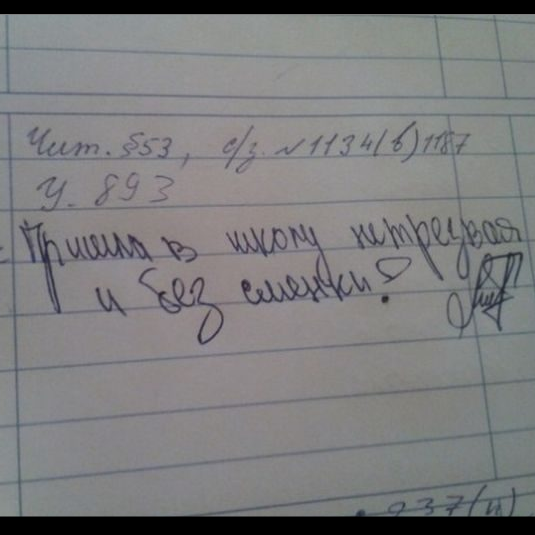 Чит. §53, с/з. №1134(в)1187
У. 893
Пришла в школу нетрезвая
и без сменки!
937(н)